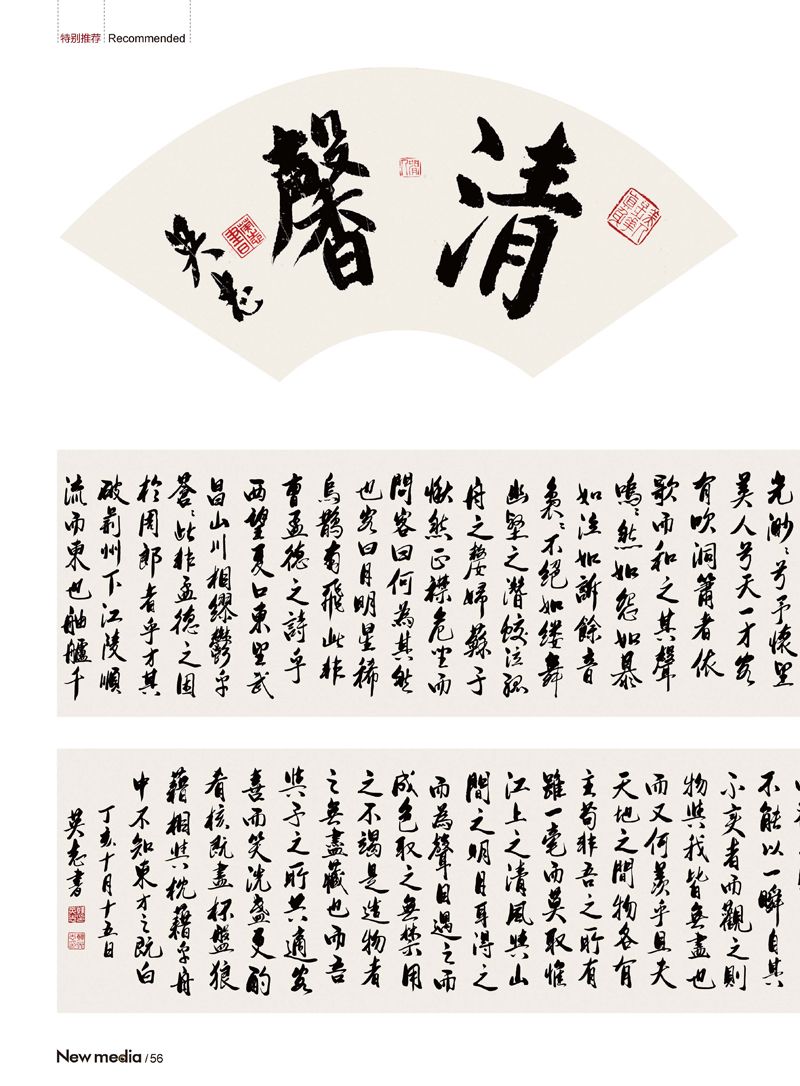 特别推荐 Recommended
清馨
英志
光渺〻兮予懷望
美人兮天一方客
有吹洞簫者依
歌而和之其聲
嗚〻然如怨如慕
如泣如訴餘音
裊〻不絕如縷舞
幽壑之潛蛟泣孤
舟之嫠婦蘇子
愀然正襟危坐而
問客曰何為其然
也客曰月明星稀
烏鵲南飛此非
曹孟德之詩乎
西望夏口東望武
昌山川相繆鬱乎
蒼〻此非孟德之困
於周郎者乎方其
破荊州下江陵順
流而東也舳艫千
不能以一瞬自其
不變者而觀之則
物與我皆無盡也
而又何羨乎且夫
天地之間物各有
主苟非吾之所有
雖一毫而莫取惟
江上之清風與山
間之明月耳得之
而為聲目遇之而
成色取之無禁用
之不竭是造物者
之無盡藏也而吾
與子之所共適客
喜而笑洗盞更酌
肴核既盡杯盤狼
藉相與枕藉乎舟
中不知東方之既白
丁亥十月十五日
英志書
New media / 56